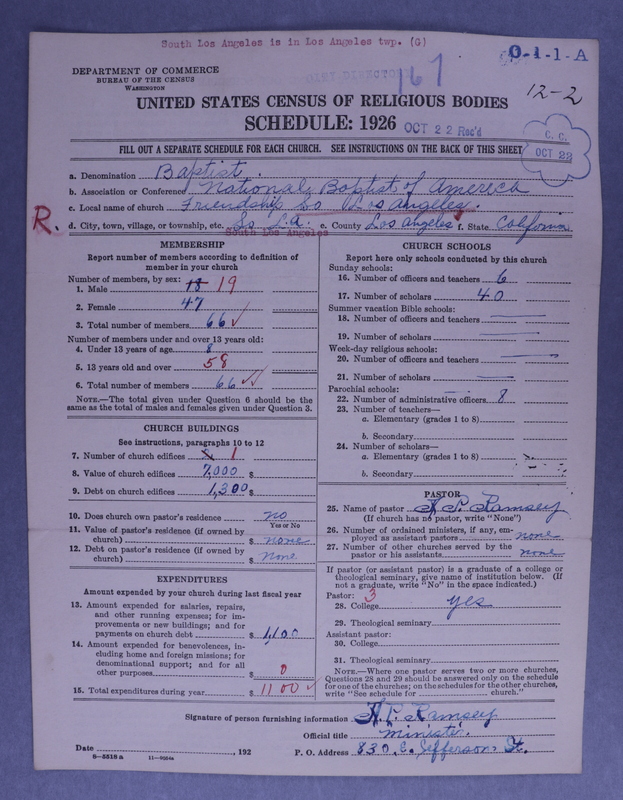 South Los Angeles is in Los Angeles twp. (G)
0-1-1-A
DEPARTMENT OF COMMERCE
BUREAU OF THE CENSUS
WASHINGTON
167
12-2
UNITED STATES CENSUS OF RELIGIOUS BODIES
SCHEDULE: 1926
OCT 22 Rec'd
C. C.
OCT 22
FILL OUT A SEPARATE SCHEDULE FOR EACH CHURCH. SEE INSTRUCTIONS ON THE BACK OF THIS SHEET
a. Denomination Baptist.
b. Association or Conference National Baptist of America
c. Local name of church Friendship So Los Angeles.
R. d. City, town, village, or township, etc. So L.A. e. County Los Angeles f. State California
South Los Angeles
MEMBERSHIP
Report number of members according to definition of
member in your church
Number of members, by sex:
1. Male 18 19
2. Female 47
3. Total number of members 66 ✓
Number of members under and over 13 years old:
4. Under 13 years of age 8
5. 13 years old and over 58
6. Total number of members 66 ✓
NOTE.—The total given under Question 6 should be the
same as the total of males and females given under Question 3.
CHURCH BUILDINGS
See instructions, paragraphs 10 to 12
7. Number of church edifices 1
8. Value of church edifices 7,000 $
9. Debt on church edifices 1,300 $
10. Does church own pastor's residence no
Yes or No
11. Value of pastor's residence (if owned by
church) $ none
12. Debt on pastor's residence (if owned by
church) $ none
EXPENDITURES
Amount expended by your church during last fiscal year
13. Amount expended for salaries, repairs,
and other running expenses; for im-
provements or new buildings; and for
payments on church debt $ 1,100
14. Amount expended for benevolences, in-
cluding home and foreign missions; for
denominational support; and for all
other purposes $ 0
15. Total expenditures during year $ 1100 ✓
CHURCH SCHOOLS
Report here only schools conducted by this church
Sunday schools:
16. Number of officers and teachers 6
17. Number of scholars 40
Summer vacation Bible schools:
18. Number of officers and teachers
19. Number of scholars
Week-day religious schools:
20. Number of officers and teachers
21. Number of scholars
Parochial schools:
22. Number of administrative officers 8
23. Number of teachers—
a. Elementary (grades 1 to 8)
b. Secondary
24. Number of scholars—
a. Elementary (grades 1 to 8)
b. Secondary
PASTOR
25. Name of pastor A. P. Ramsey
(If church has no pastor, write "None")
26. Number of ordained ministers, if any, em-
ployed as assistant pastors none
27. Number of other churches served by the
pastor or his assistants none
If pastor (or assistant pastor) is a graduate of a college or
theological seminary, give name of institution below. (If
not a graduate, write "No" in the space indicated.)
Pastor: 3
28. College yes
29. Theological seminary
Assistant pastor:
30. College
31. Theological seminary
NOTE.—Where one pastor serves two or more churches,
Questions 28 and 29 should be answered only on the schedule
for one of the churches; on the schedules for the other churches,
write "See schedule for church."
Signature of person furnishing information A. P. Ramsey
Official title minister.
Date , 192 P. O. Address 830 E. Jefferson St.
8—5518 a 11—9064a